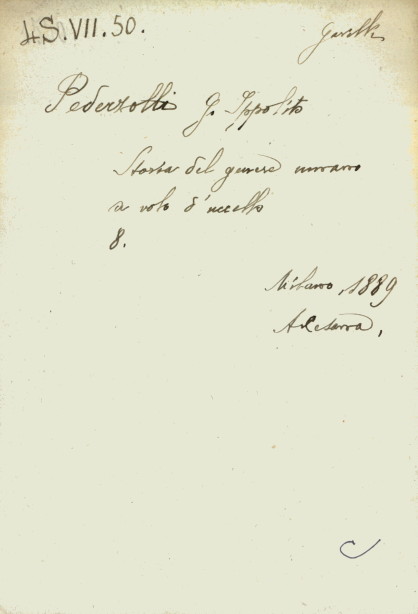 4S.VII.50.
Pederzolli G. Ippolito
Storia del genere umano
a volo d'uccello
8.
Milano, 1889